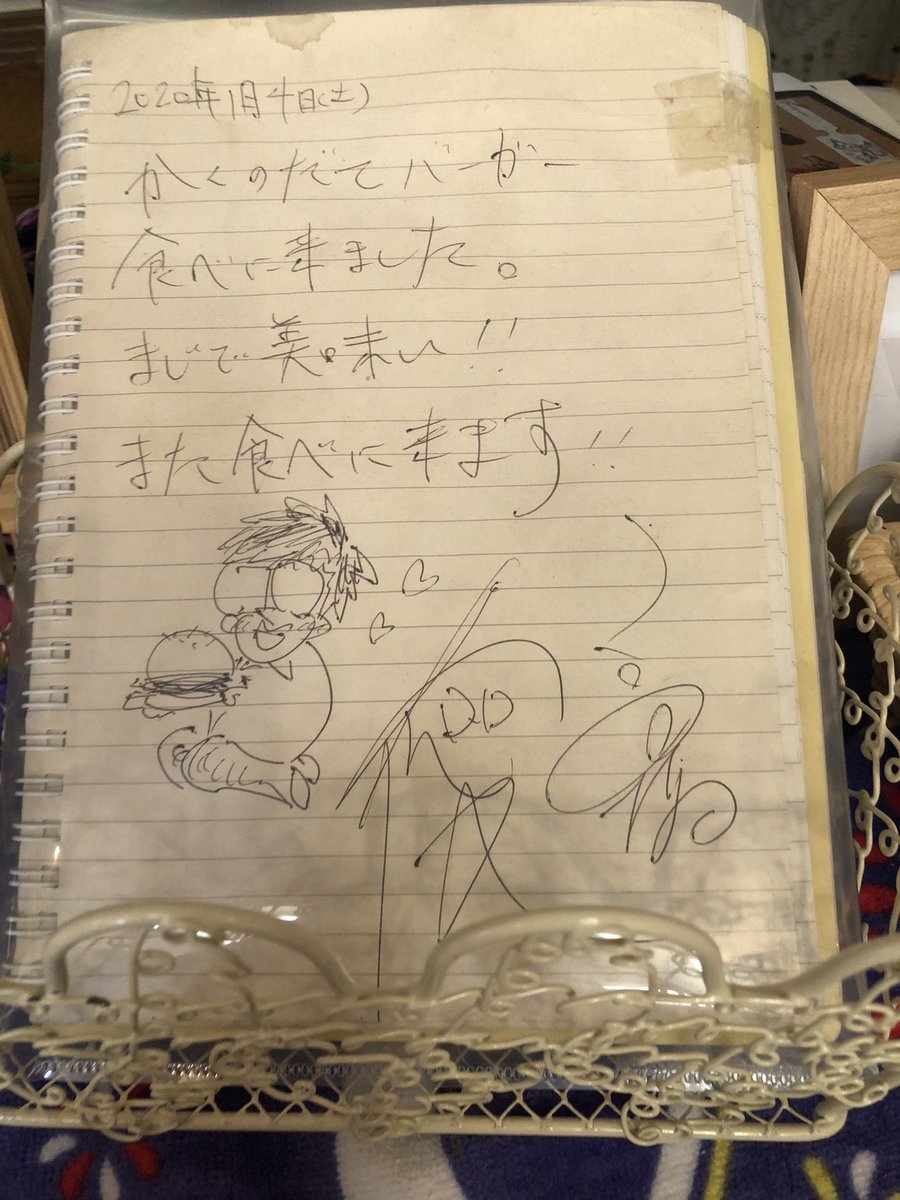 2020年1月4日(土)
かくのだてバーガー
食べに来ました。
まじで美味い!!
また食べに来ます!!